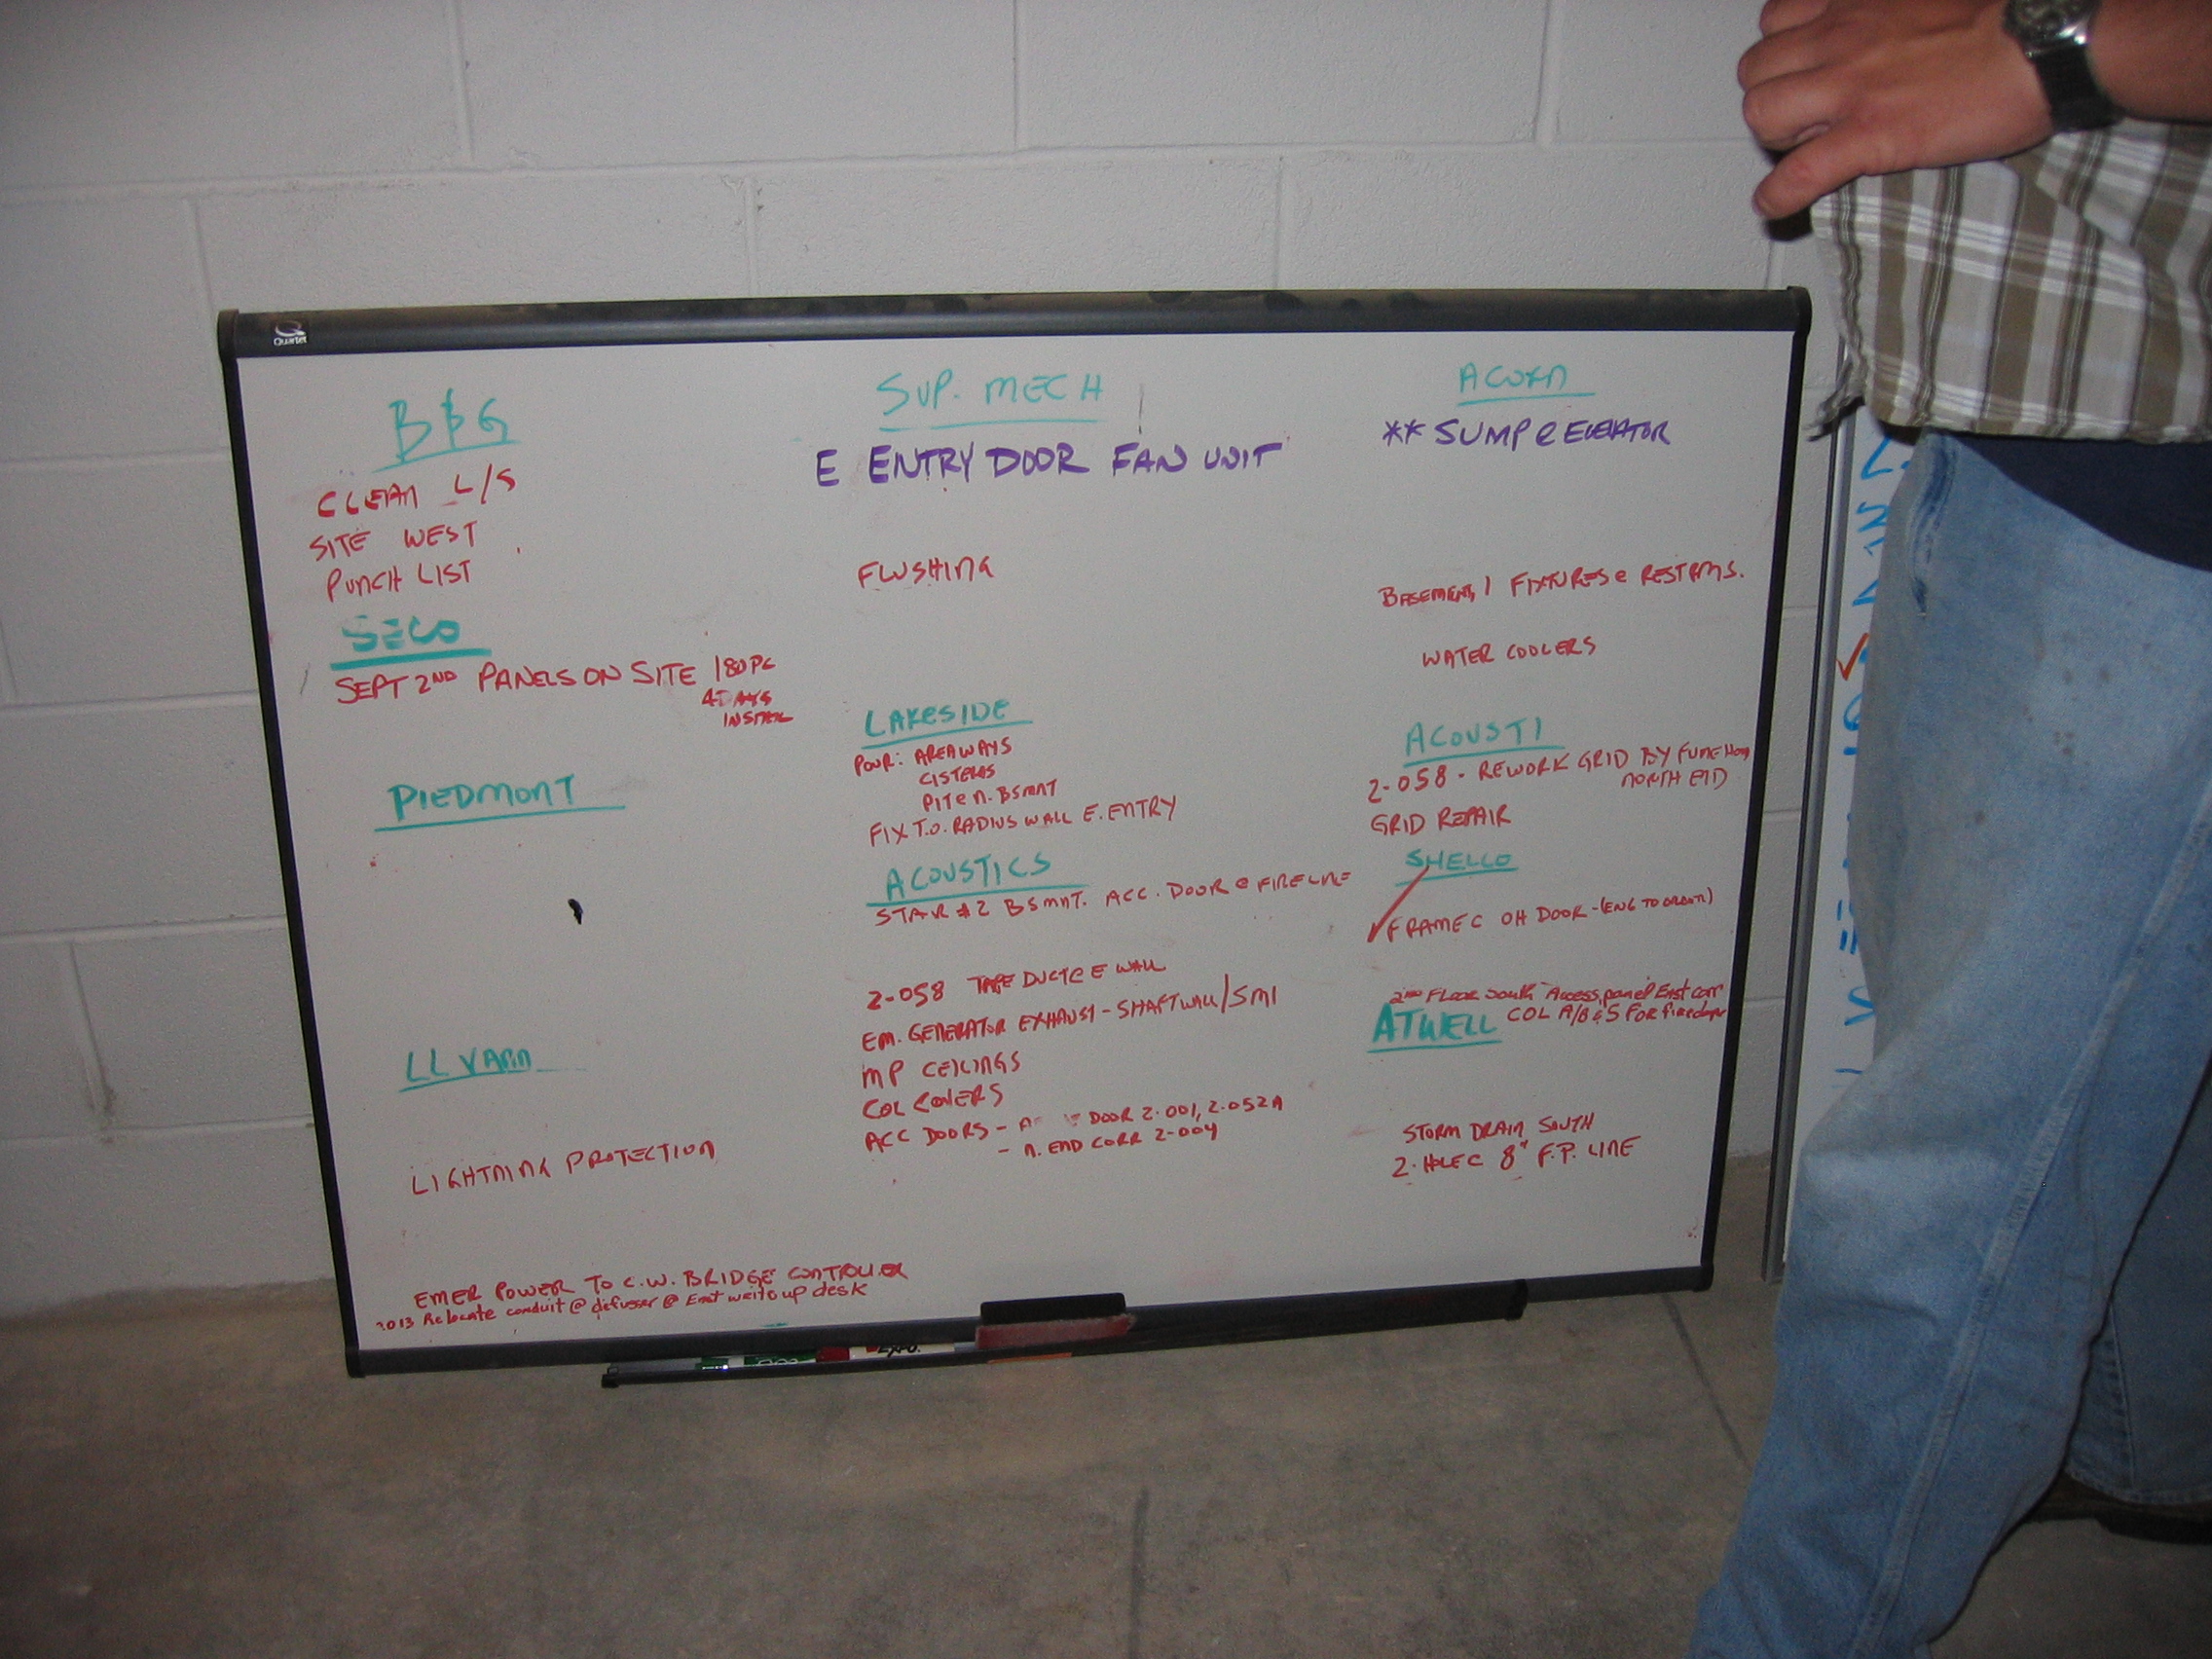 Quartet
B&G
CLEAN L/S
SITE WEST
PUNCH LIST
SECO
SEPT 2ND PANELS ON SITE 180 PC
4 DAYS
INSTALL
PIEDMONT
LL VANN
LIGHTNING PROTECTION
EMER POWER TO C.W. BRIDGE CONTROLLER
Relocate conduit @ difuser @ East write up desk
SUP. MECH
E ENTRY DOOR FAN UNIT
FLUSHING
LAKESIDE
POUR: AREAWAYS
CISTERNS
PIT @ N. BSMNT
FIX T.O. RADIUS WALL E. ENTRY
ACOUSTICS
STAIR #2 BSMNT. ACC. DOOR @ FIRE LINE
2-058 TAPE DUCT @ E WALL
EM. GENERATOR EXHAUST - SHAFTWALL/SMI
MP CEILINGS
COL COVERS
ACC DOORS - DOOR 2-001, 2-052A
- N. END CORR 2-004
ACORN
** SUMP @ ELEVATOR
BASEMENT, 1 FIXTURES @ RESTRMS.
WATER COOLERS
ACOUSTI
2-058 - REWORK GRID BY FUME HOOD
NORTH END
GRID REPAIR
SHELCO
FRAME @ OH DOOR - (ENG TO )
2ND FLOOR South Access panel East corr
COL A/B & 5 FOR
ATWELL
STORM DRAIN SOUTH
2. HOLE @ 8" F.P. LINE
EXPO